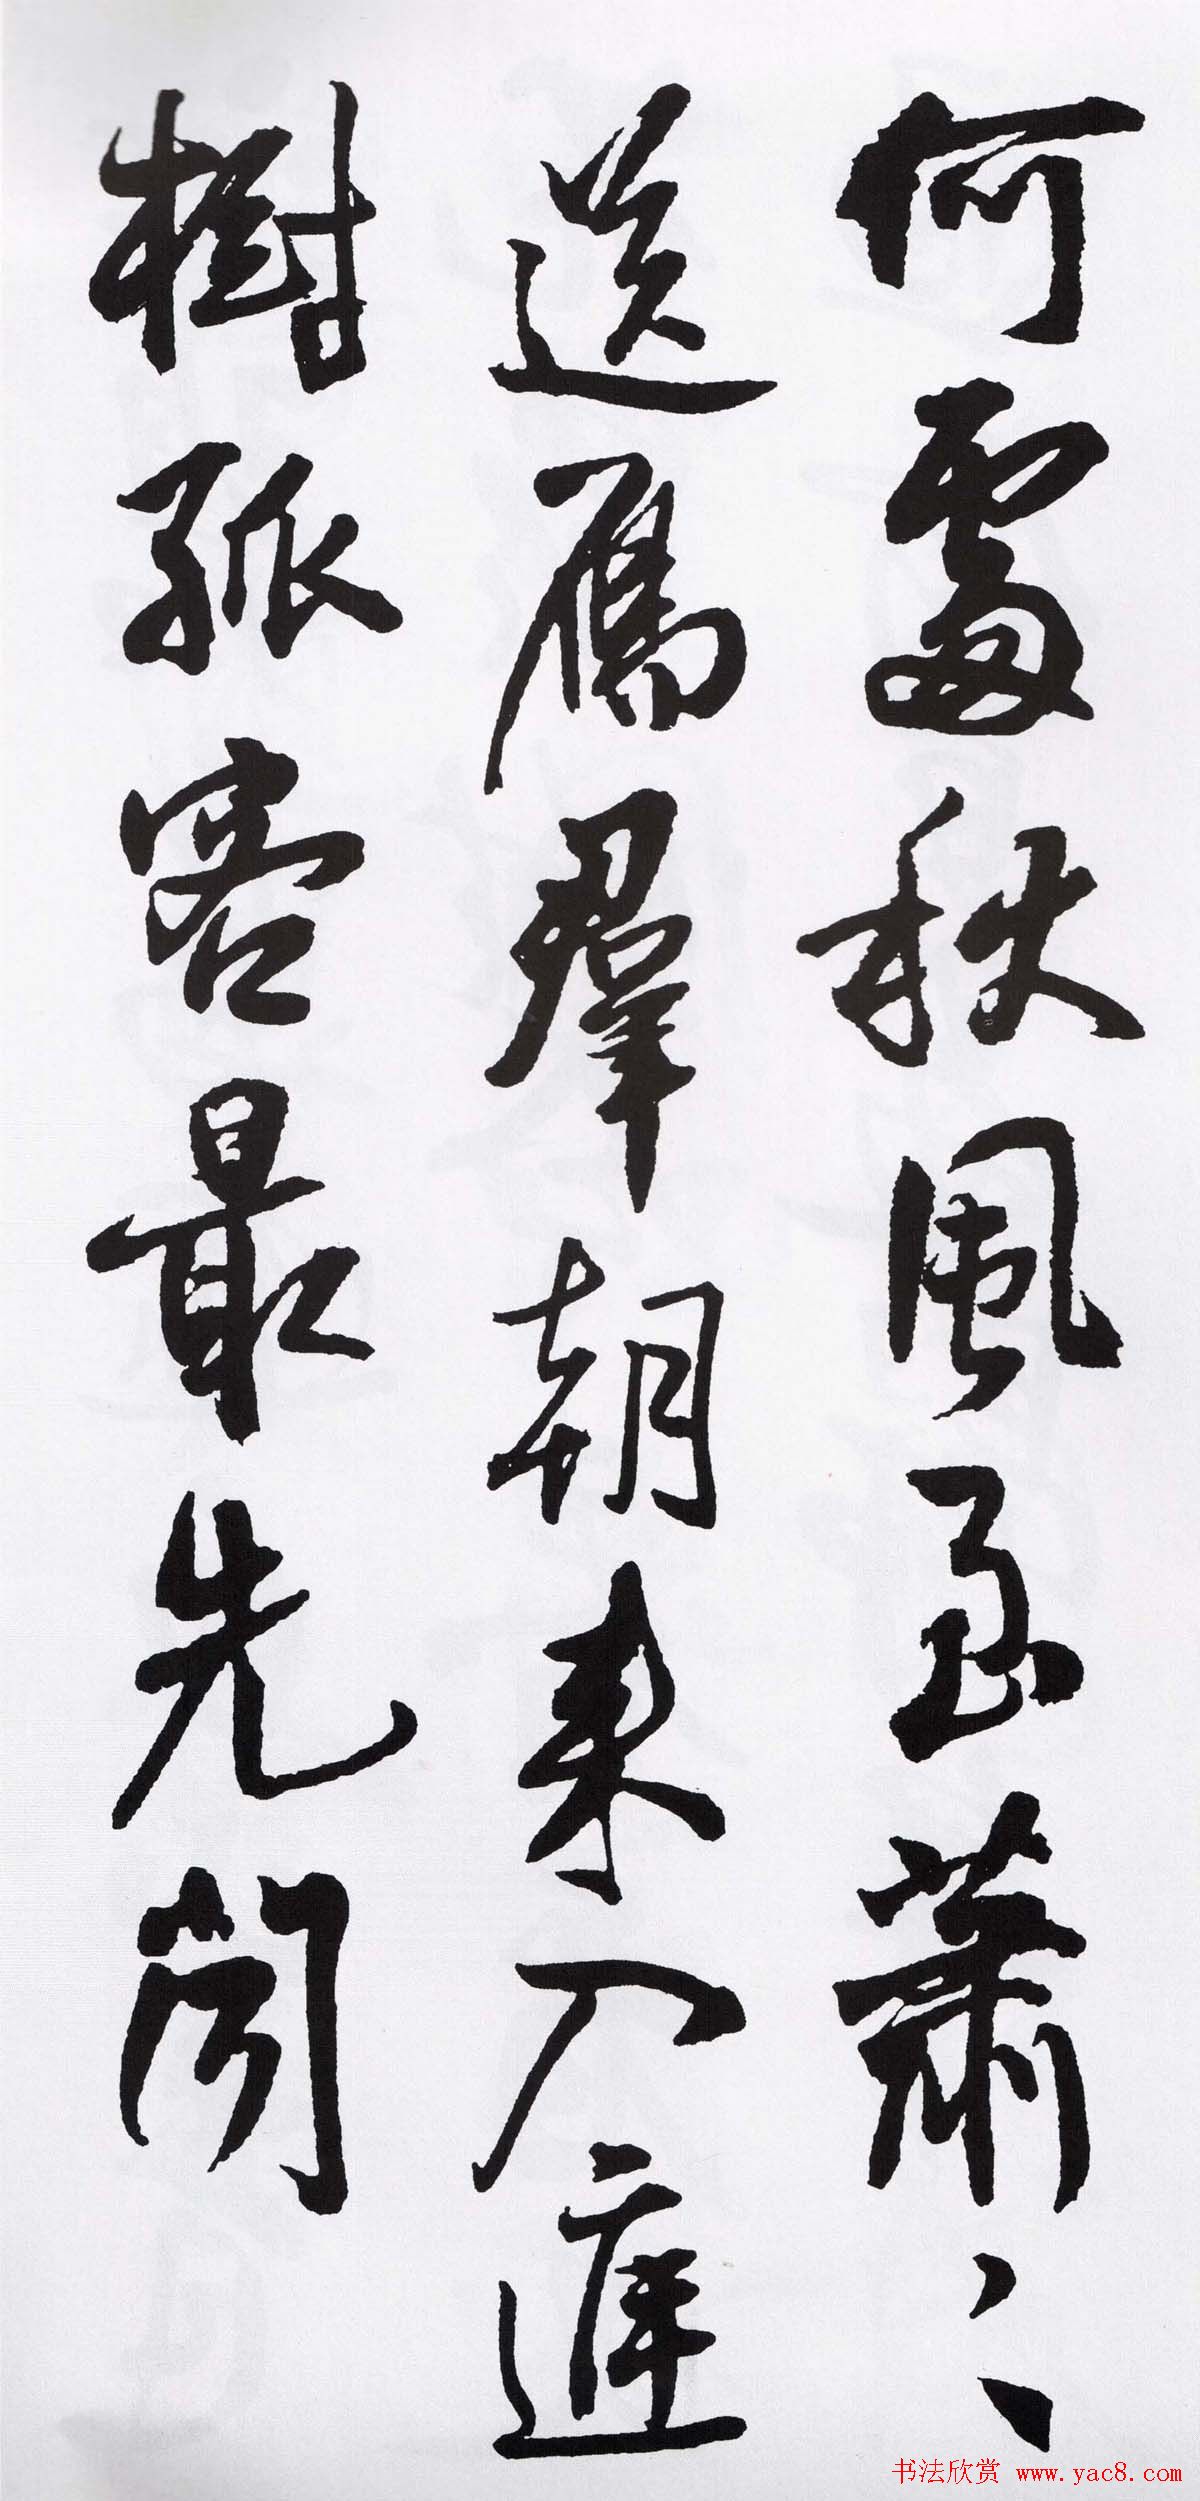 何處秋風至蕭〻
送鴈羣朝来入庭
樹孤客最先聞
书法欣赏 www.yac8.com